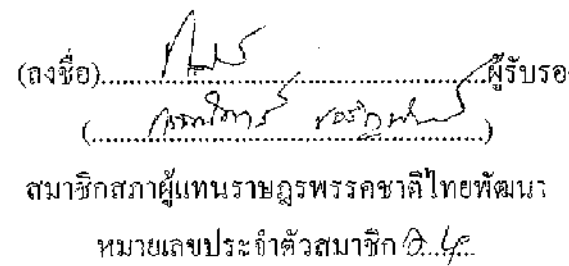 (ลงชื่อ)....................................................ผู้รับรอ
(....................................................)
สมาชิกสภาผู้แทนราษฎรพรรคชาติไทยพัฒนา
หมายเลขประจำตัวสมาชิก